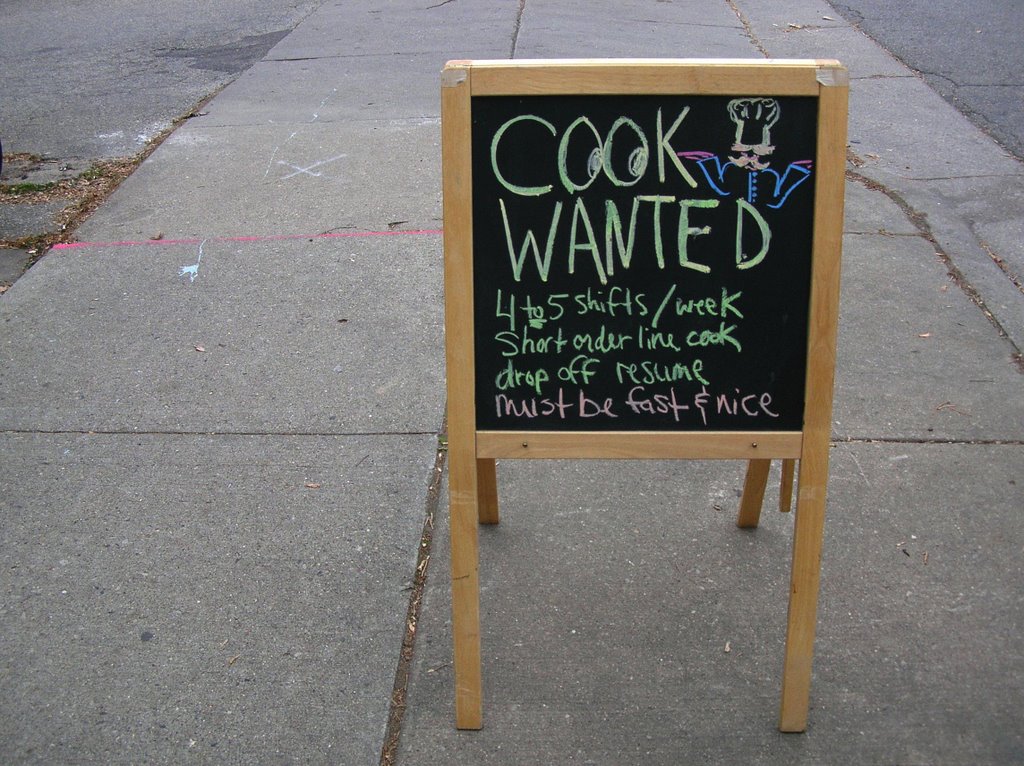 COOK
WANTED
4 to 5 shifts/week
Short order line cook
drop off resume
must be fast & nice